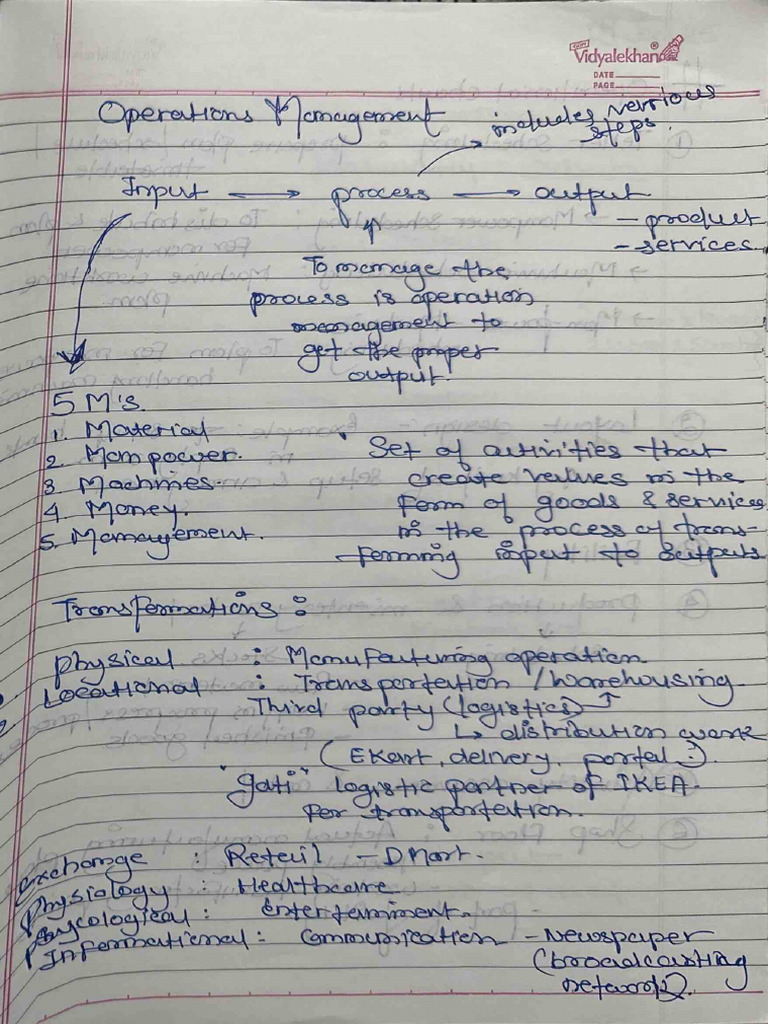 Vidyalekhan
DATE
PAGE
Operations Management
includes verious
steps.
Input → process → output
- product
- services.
To manage the
process is operation
management to
get the proper
output.
5 M's.
1. Material
2. Manpower.
3 Machines.
4 Money.
5. Management.
Set of activities that
create values in the
form of goods & services
in the process of trans-
forming input to outputs
Transformations :
physical : Manufacturing operation
Locational : Transportation / warehousing
Third party (logistics)
↳ distribution work
(EKart, delivery, portal :).
"gati" logistic partner of IKEA.
For transportation.
exchange : Retail - DMart.
Physiology : Healthcare
Psycological : entertainment.
Informational : Communication - Newspaper
(broadcasting
network).